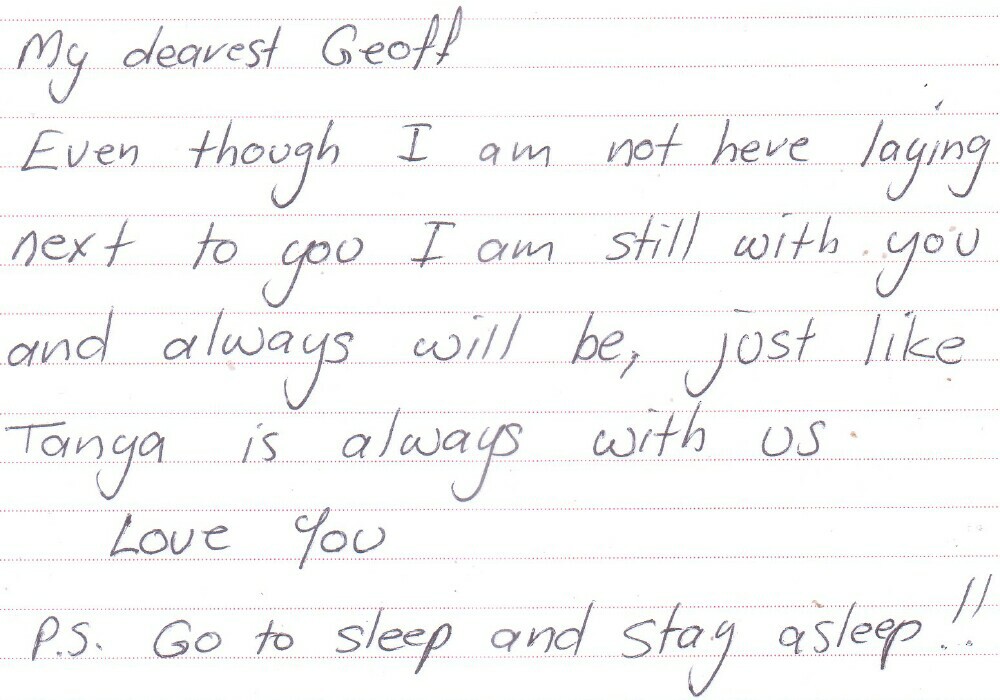 My dearest Geoff
Even though I am not here laying
next to you I am still with you
and always will be, just like
Tanya is always with us.
Love You
P.S. Go to sleep and stay asleep!!